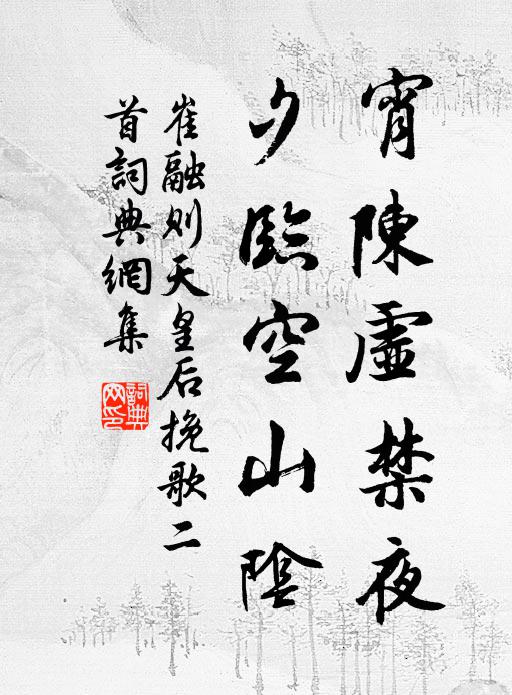 宵陳虛禁夜
夕臨空山陰
崔融则天皇后挽歌二
首詞典網集
詞典
网印